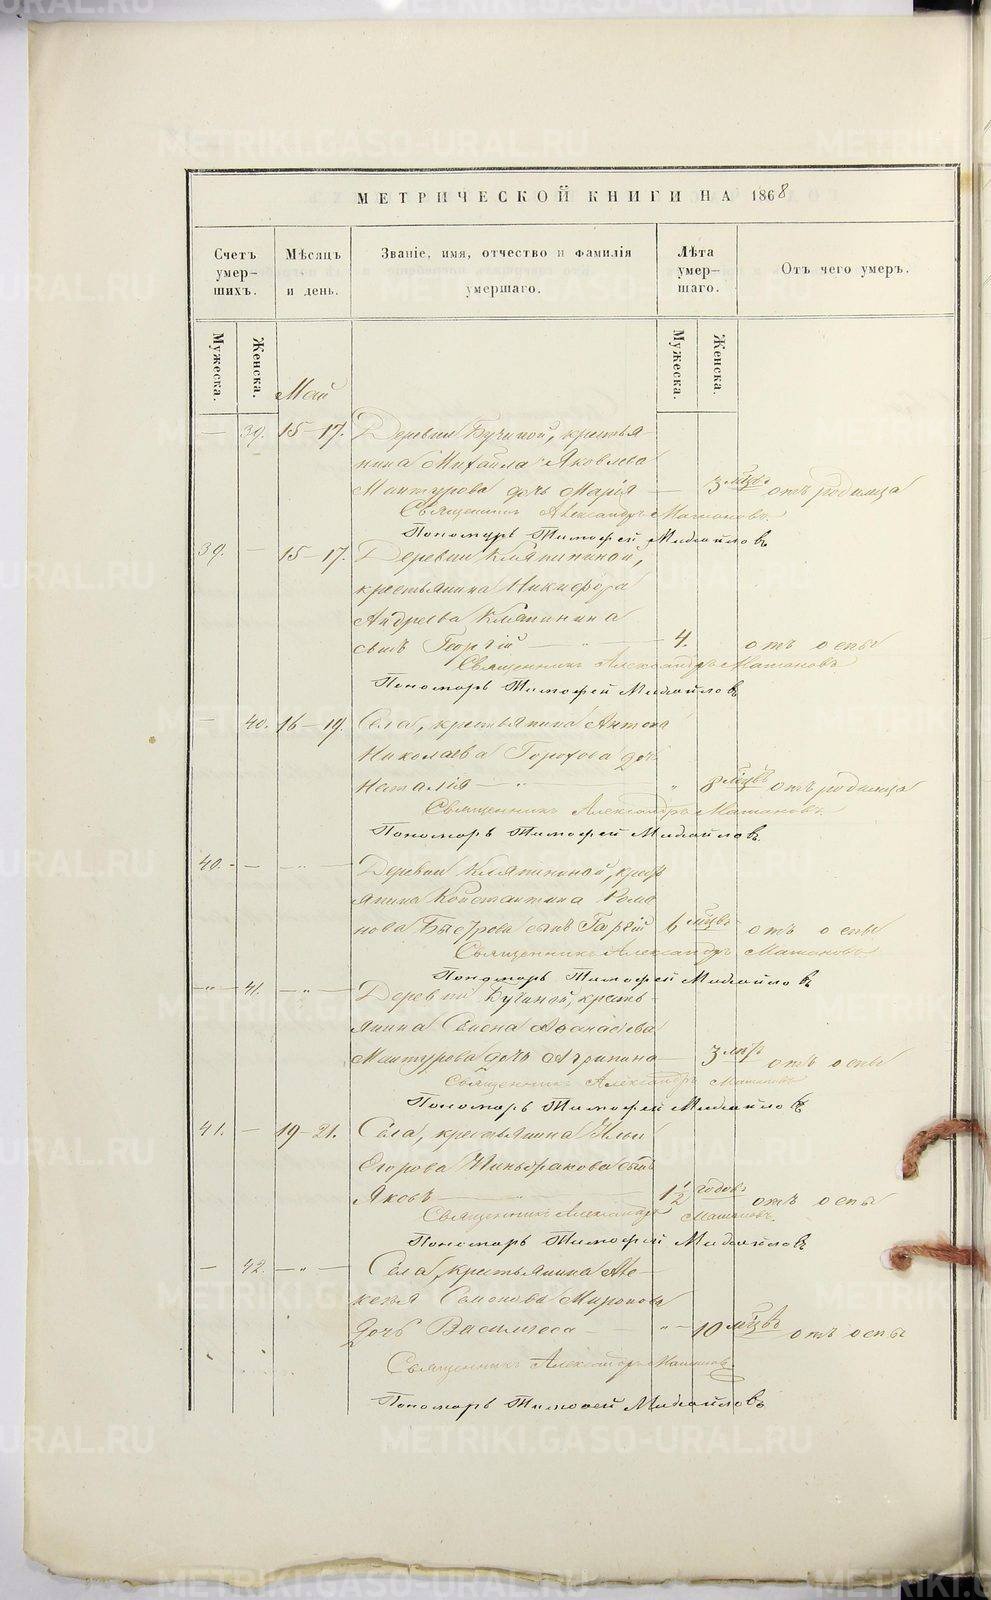 МЕТРИЧЕСКОЙ КНИГИ НА 1868
Счетъ умер- шихъ.
Мѣсяцъ и день.
Званіе, имя, отчество и фамилія умершаго.
Лѣта умер- шаго.
Отъ чего умеръ.
Мужеска. Женска. Мужеска. Женска.
Май
— 39. 15-17. Деревни Бугиной, крестья
нина Михайла Яковлева
Мантурова дочь Марія — 3 мѣцъ отъ родимца
Священникъ Александръ
Пономарь Тимофей Михайловъ
39. — 15-17. Деревни Кляпиной,
крестьянина Никифора
Андреева Кляпинина
сынъ Георгій — 4. отъ оспы
Священникъ Александръ
Пономарь Тимофей Михайловъ
— 40. 16-19. Села, крестьянина Антона
Николаева Горохова дочь
Наталія — " 8 мѣцъ отъ родимца
Священникъ Александръ
Пономарь Тимофей Михайловъ
40. — — " — Деревни
янина Константина Рома
нова Быстрова сынъ Георгій 6 мѣцъ отъ оспы
Священникъ Александръ
Пономарь Тимофей Михайловъ
— " — 41. — " — Деревни Бугиной, кресть-
янина Семена Афанасьева
Мантурова дочь Агрипина — 3 отъ оспы
Священникъ Александръ
Пономарь Тимофей Михайловъ
41. — 19-21. Села, крестьянина Ильи
Егорова сынъ
Яковъ — 1 1/2 годовъ отъ оспы
Священникъ Александръ
Пономарь Тимофей Михайловъ
— 42. — " — Села, крестьянина
Семенова Миронова
дочь Василиса — " — 10 мѣцъ отъ оспы
Священникъ Александръ
Пономарь Тимофей Михайловъ
METRIKI.GASO-URAL.RU